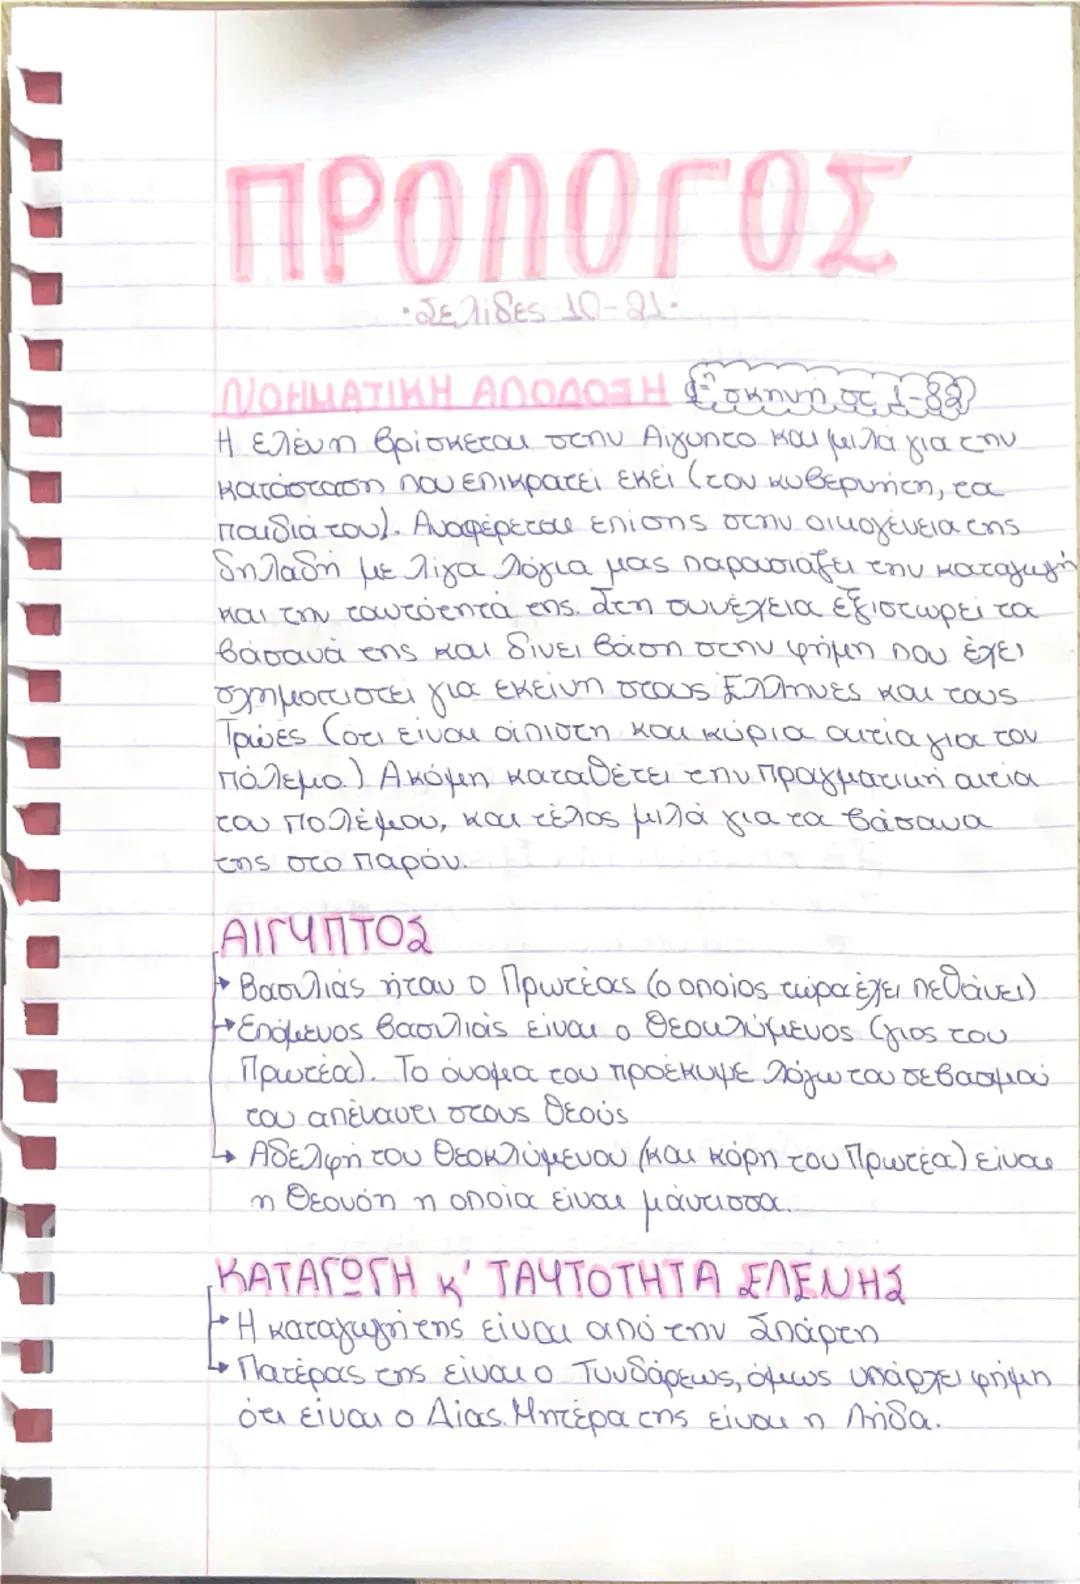 ΠΡΟΛΟΓΟΣ
·Σελίδες 10-21·
ΝΟΗΜΑΤΙΚΗ ΑΠΟΔΟΣΗ 1η σκηνή στ 1-82
Η Ελένη βρίσκεται στην Αίγυπτο και μιλά για την
κατάσταση που επικρατεί εκεί (τον κυβερνήτη, τα
παιδιά του). Αναφέρεται επίσης στην οικογένεια της
δηλαδή με λίγα λόγια μας παρουσιάζει την καταγωγή
και την ταυτότητά της. Στη συνέχεια εξιστωρεί τα
βάσανά της και δίνει βάση στην φήμη που έχει
σχηματιστεί για εκείνη στους Έλληνες και τους
Τρώες (ότι είναι άπιστη και κύρια αιτία για τον
πόλεμο.) Ακόμη καταθέτει την πραγματική αιτία
του πολέμου, και τέλος μιλά για τα βάσανα
της στο παρόν.
ΑΙΓΥΠΤΟΣ
→ Βασιλιάς ήταν ο Πρωτέας (ο οποίος τώρα έχει πεθάνει)
→ Επόμενος βασιλιάς είναι ο Θεοκλύμενος (γιος του
Πρωτέα). Το όνομα του προέκυψε λόγω του σεβασμού
του απέναντι στους θεούς
→ Αδελφή του Θεοκλύμενου (και κόρη του Πρωτέα) είναι
η Θεονόη η οποία είναι μάντισσα.
ΚΑΤΑΓΩΓΗ Κ' ΤΑΥΤΟΤΗΤΑ ΕΛΕΝΗΣ
→ Η καταγωγή της είναι από την Σπάρτη
→ Πατέρας της είναι ο Τυνδάρεως, όμως υπάρχει φήμη
ότι είναι ο Δίας. Μητέρα της είναι η Λήδα.